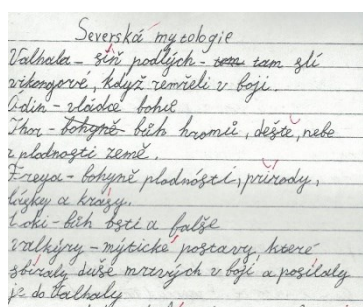 Severská mytologie
Valhala - síň podlých - tam tam šli
vikongové, když zemřeli v boji.
Ódin - vládce bohů
Thor - bohyně bůh hromů, deště, nebe
a plodnosti země.
Freya - bohyně plodnosti, přírody,
lásky a krásy.
Loki - bůh lsti a falše
Valkýry - mýtické postavy, které
sbíraly duše mrtvých v boji a posílaly
je do Valhaly